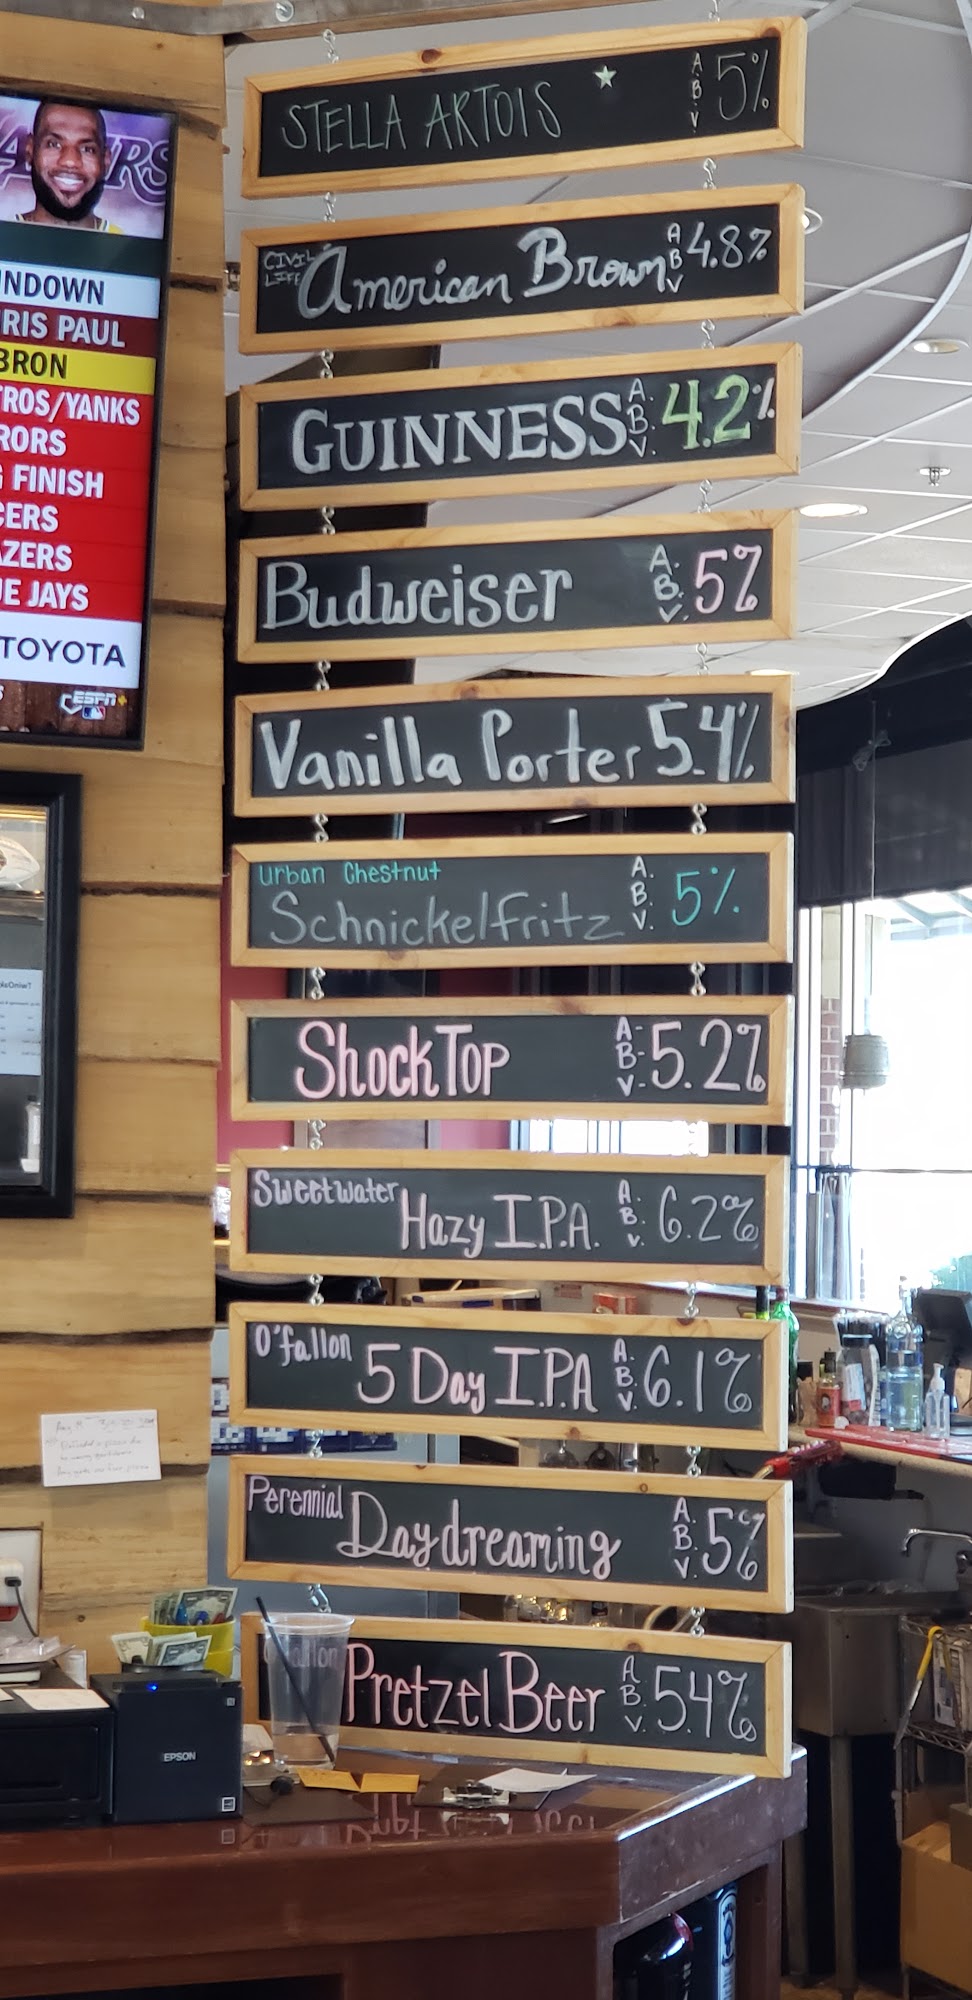 NDOWN
RIS PAUL
BRON
TROS/YANKS
RORS
G FINISH
CERS
AZERS
UE JAYS
TOYOTA
ESPN+
STELLA ARTOIS A B V 5%
CIVIL LIFE American Brown A B V 4.8%
GUINNESS A. B. V. 4.2%
Budweiser A. B. V. 5%
Vanilla Porter 5.4%
Urban Chestnut
Schnickelfritz A. B. V. 5%
ShockTop A- B- V- 5.2%
Sweetwater
Hazy I.P.A. A. B. V. 6.2%
O'fallon
5 Day I.P.A A. B. V. 6.1%
Perennial
Daydreaming A. B. V. 5%
Pretzel Beer A B. V. 5.4%
EPSON